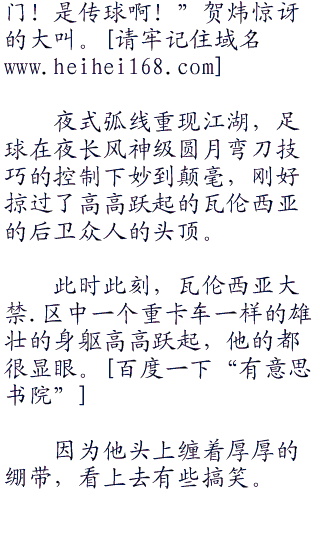 门！是传球啊！”贺炜惊讶
的大叫。[请牢记住域名
www.heihei168.com]
夜式弧线重现江湖，足
球在夜长风神级圆月弯刀技
巧的控制下妙到颠毫，刚好
掠过了高高跃起的瓦伦西亚
的后卫众人的头顶。
此时此刻，瓦伦西亚大
禁.区中一个重卡车一样的雄
壮的身躯高高跃起，他的都
很显眼。[百度一下“有意思
书院”]
因为他头上缠着厚厚的
绷带，看上去有些搞笑。